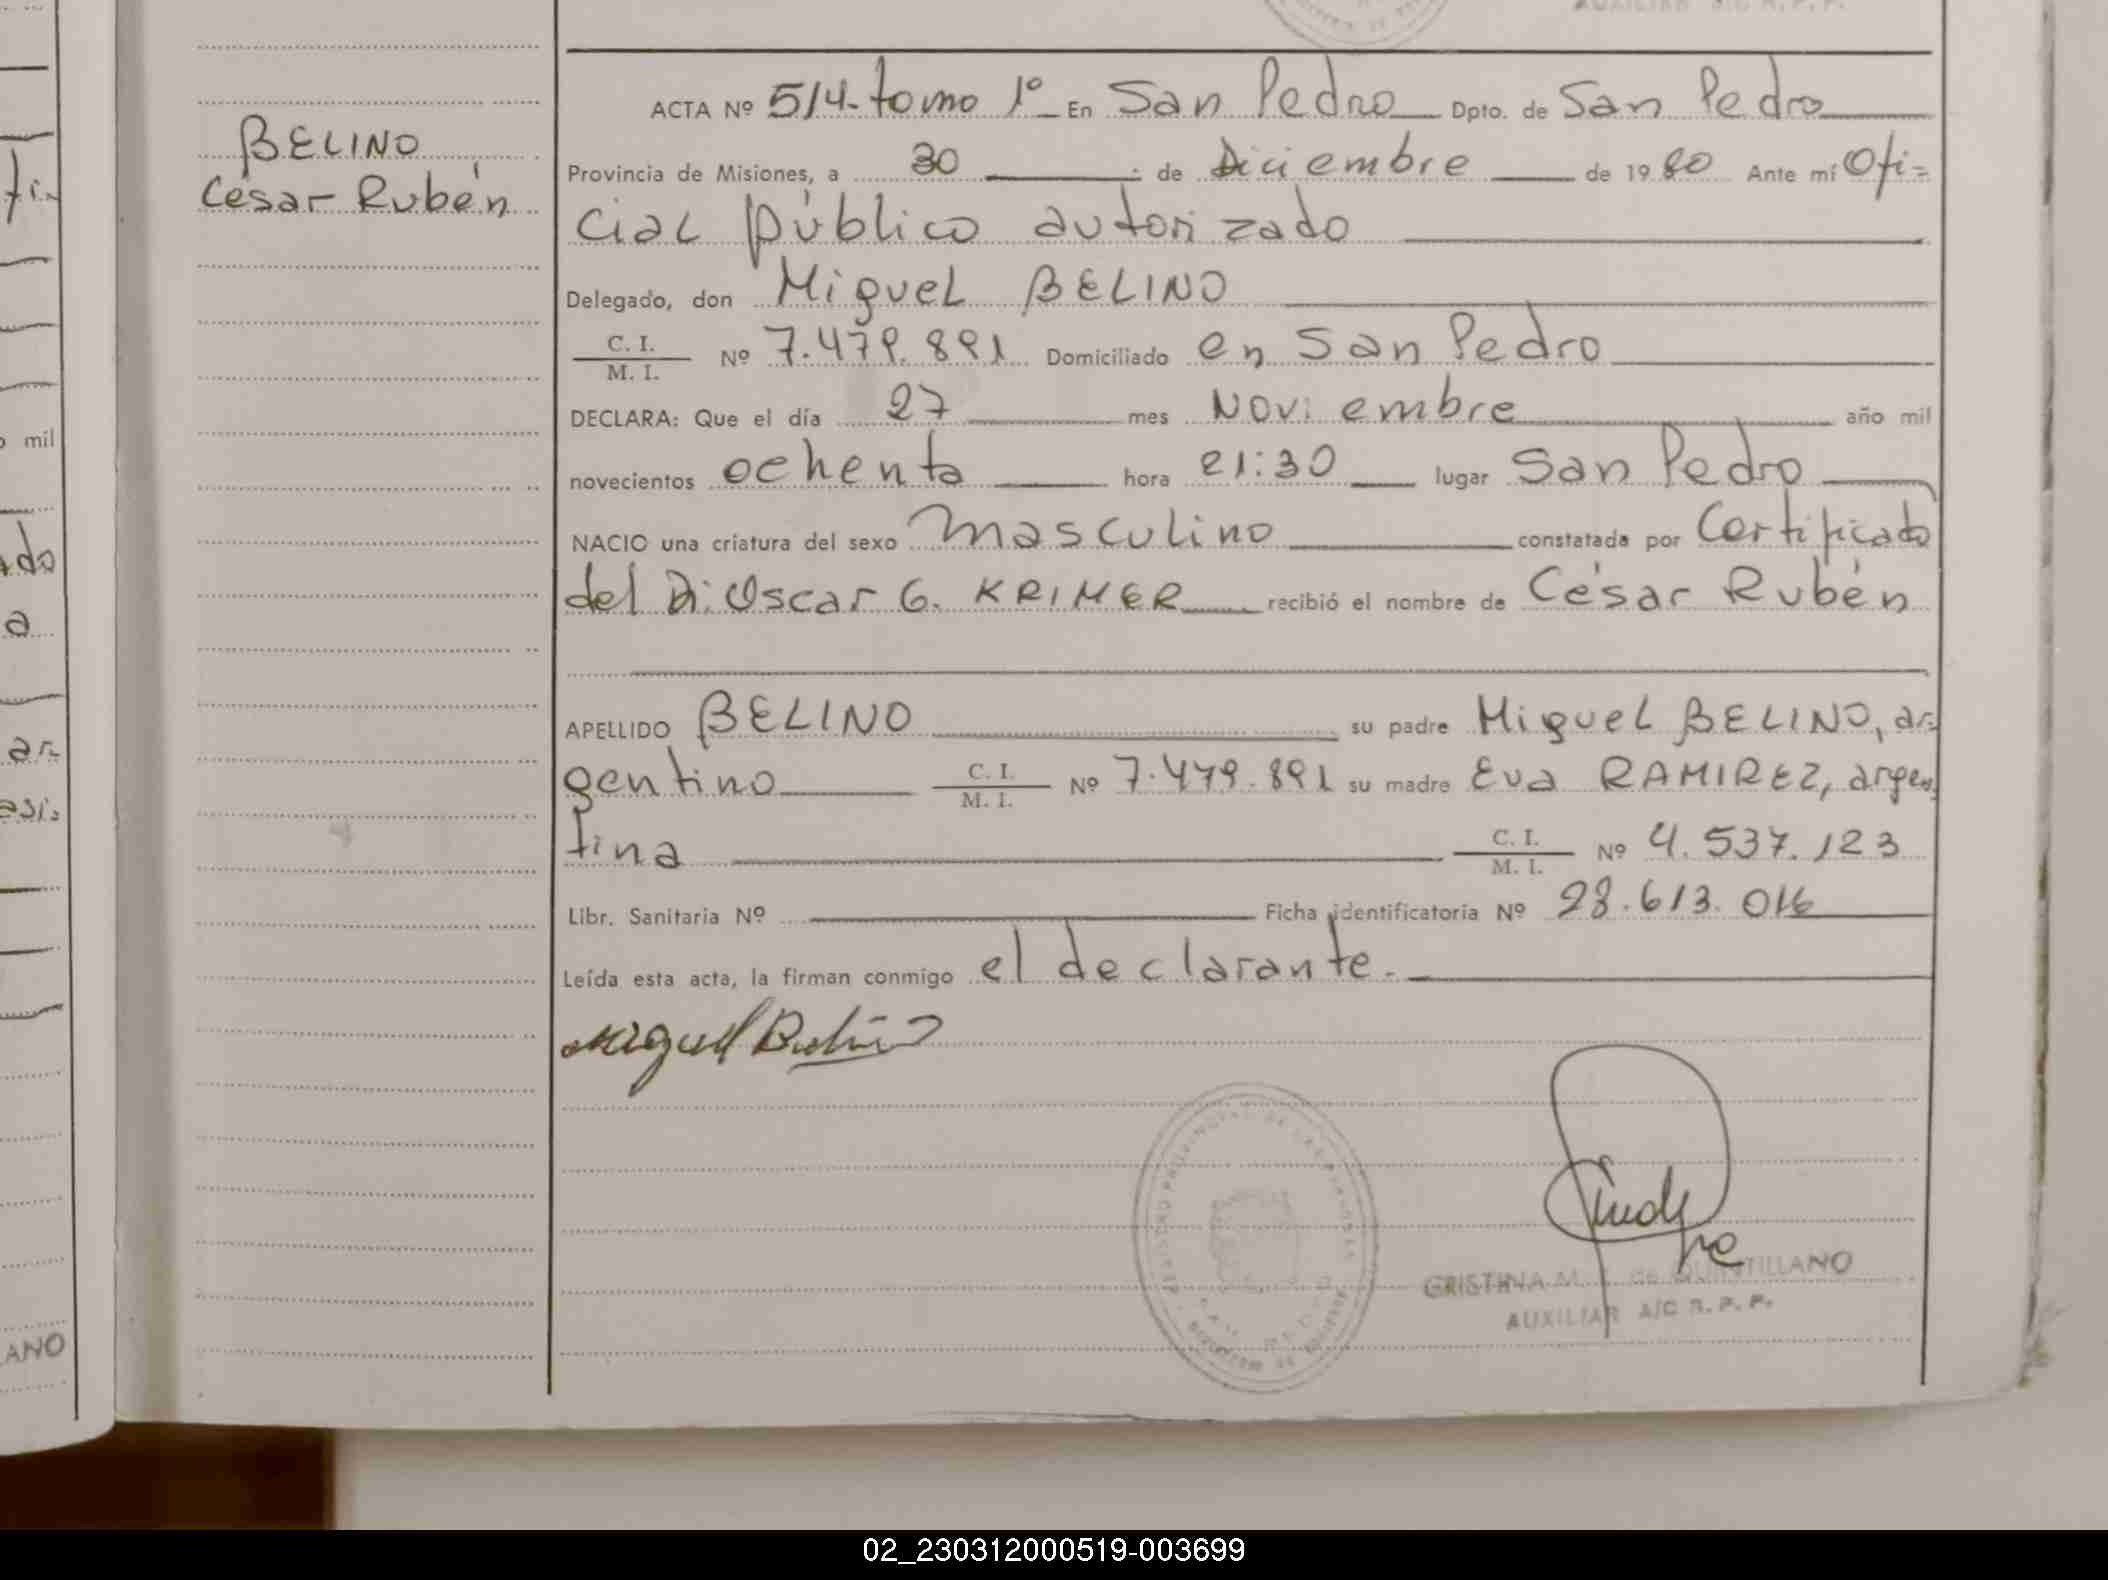 AUXILIAR A/C R. P. P.
BELINO
César Rubén
ACTA Nº 514-tomo 1º En San Pedro Dpto. de San Pedro
Provincia de Misiones, a 30 de Diciembre de 1980 Ante mí Ofi=
cial público autorizado
Delegado, don Miguel BELINO
C. I.
M. I.
Nº 7.479.891 Domiciliado en San Pedro
DECLARA: Que el día 27 mes Noviembre año mil
novecientos ochenta hora 21:30 lugar San Pedro
NACIO una criatura del sexo masculino constatada por Certificado
del Dr. Oscar G. KRIMER recibió el nombre de César Rubén
APELLIDO BELINO su padre Miguel BELINO, ar=
gentino C. I. M. I. Nº 7.479.891 su madre Eva RAMIREZ, argen
tina C. I. M. I. Nº 4.537.123
Libr. Sanitaria Nº Ficha identificatoria Nº 28.613.016
Leída esta acta, la firman conmigo el declarante.
Miguel Belino
CRISTINA M. de QUINTILLANO
AUXILIAR A/C R. P. P.
mil
ANO
02_230312000519-003699